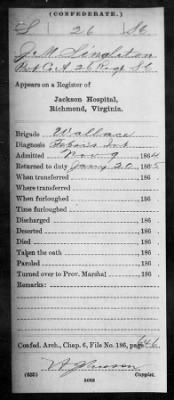 (CONFEDERATE.)
S 26 S.C.
J. M. Singleton
Co. A, 26 Reg. S.C.
Appears on a Register of
Jackson Hospital,
Richmond, Virginia.
Brigade Wallace
Diagnosis Febris Int
Admitted Nov 9, 1864
Returned to duty Jany 20, 1865
When transferred , 186
Where transferred
When furloughed , 186
Time furloughed
Discharged , 186
Deserted , 186
Died , 186
Taken the oath , 186
Paroled , 186
Turned over to Prov. Marshal , 186
Remarks:
Confed. Arch., Chap. 6, File No. 186, page 646
(635) Copyist.